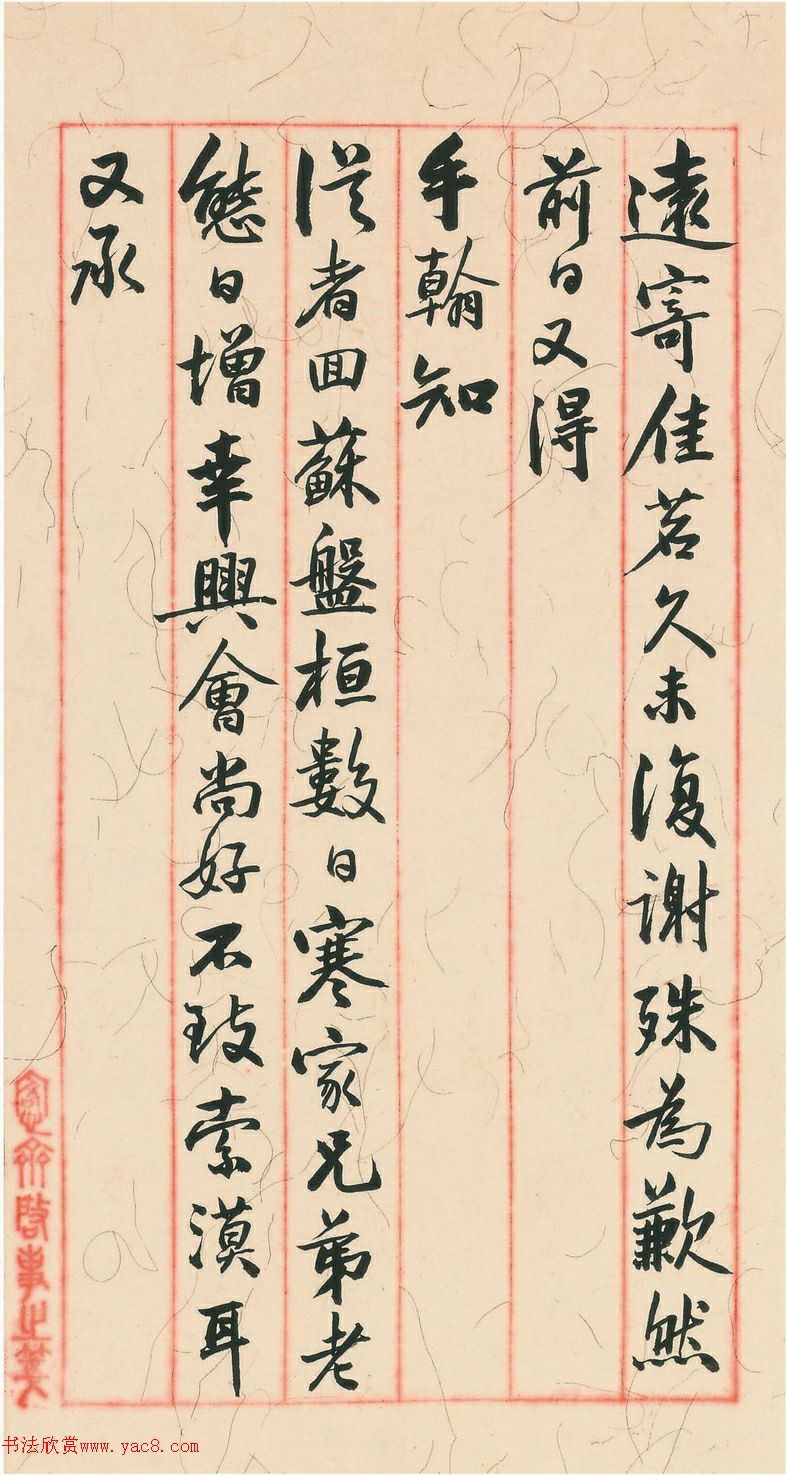 遠寄佳茗久未復謝殊為歉然
前日又得
手翰知
從者回蘇盤桓數日寒家兄弟老
態日增幸興會尚好不致索漠耳
又承
窓齋啓事之箋
书法欣赏www.yac8.com